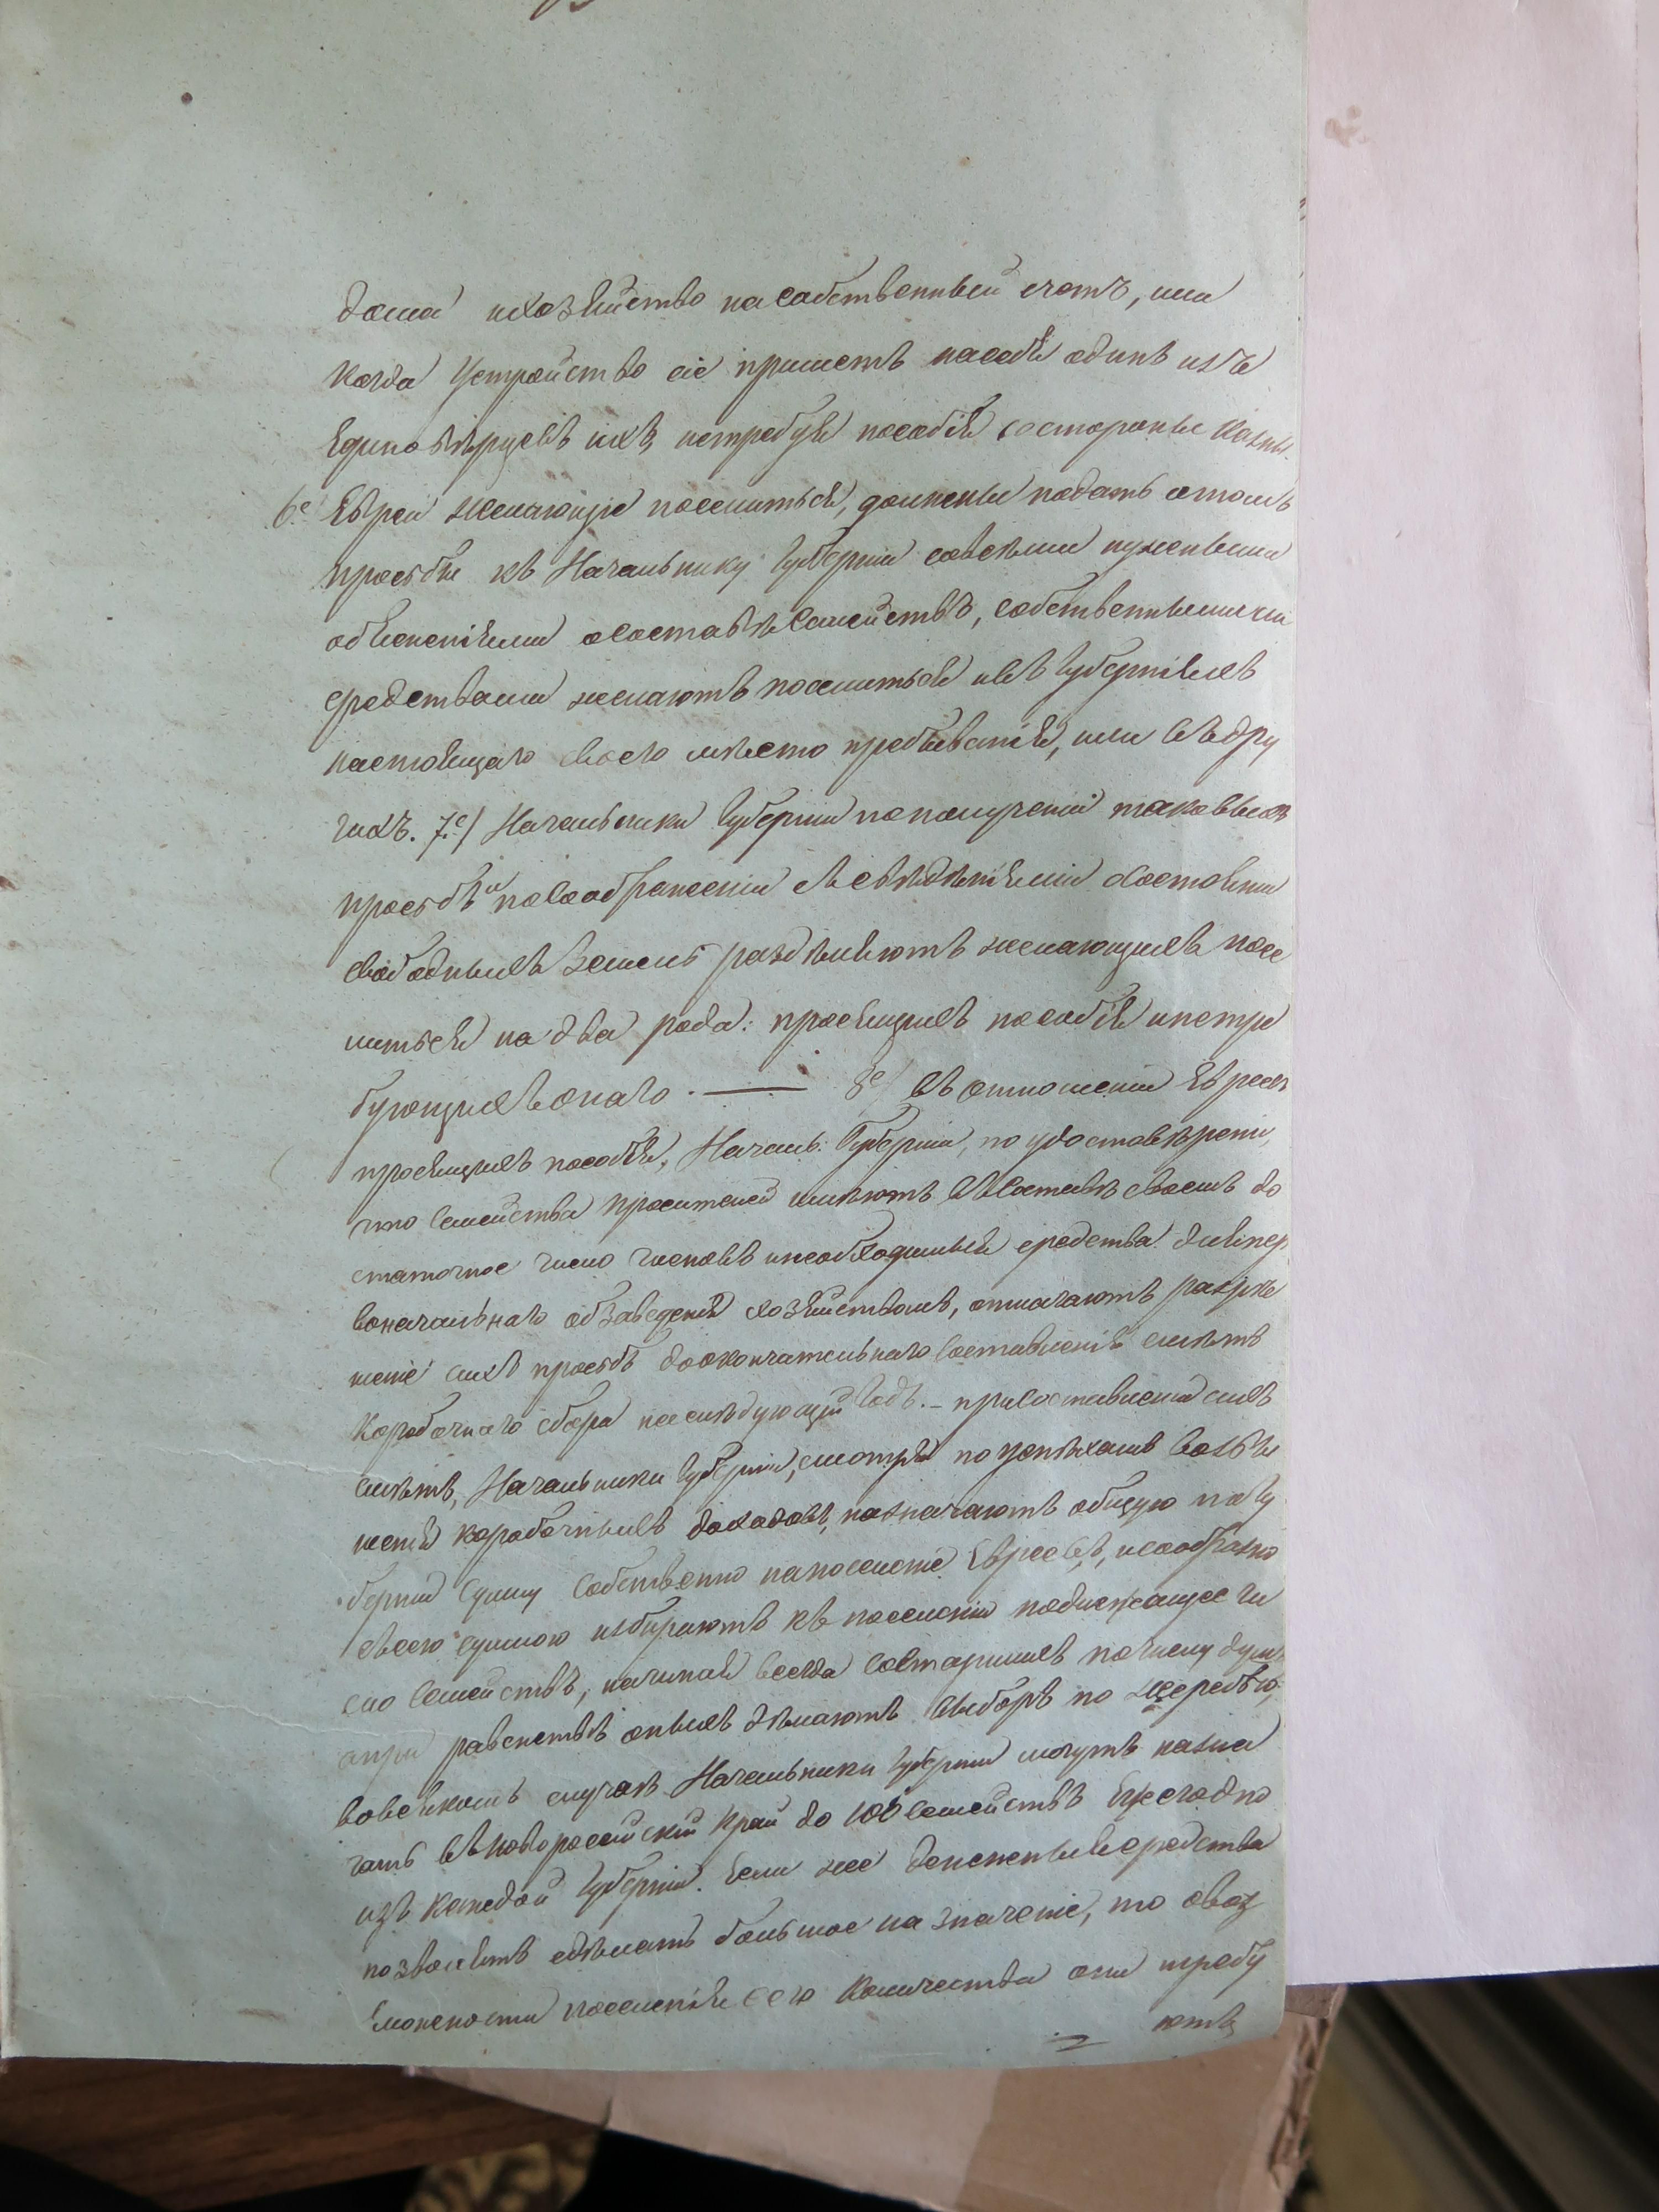 дома и хозяйство на собственный счетъ, или
когда устройство сіе приметъ на себя одинъ изъ
единовѣрцевъ ихъ, не требуя пособія со стороны казны.
6е/ Евреи желающіе поселиться, должны подать о томъ
просьбы къ Начальнику Губерніи со всѣми нужными
объясненіями о составѣ Семействъ, собственными ли
средствами желаютъ поселиться и въ Губерніяхъ
настоящаго своего мѣсто пребыванія, или въ дру
гихъ. 7е/ Начальники Губерніи по полученіи таковыхъ
просьбъ и по соображеніи съ свѣдѣніями о состояніи
свободныхъ Земель раздѣляютъ желающихъ посе
литься на два рода: просящихъ пособія и не тре
бующихъ онаго. — 8е/ въ отношеніи Евреевъ
просящихъ пособія, Началь: Губерніи, по удостовѣреніи,
что Семейства просителей имѣютъ въ Составѣ своемъ до
статочное число членовъ и необходимыя средства для пер
воначальнаго обзаведенія хозяйствомъ, отлагаютъ разрѣ
шеніе сихъ просьбъ до окончательнаго Составленія смѣтъ
Коробочнаго сбора на слѣдующій Годъ. – при Составленіи сихъ
смѣтъ, Начальники Губерніи, смотря по успѣхамъ Возвы
шенія коробочныхъ доходовъ, назначаютъ общую по Гу
берніи Сумму Собственно на поселеніе Евреевъ, и сообразно
съ сею суммою избираютъ къ поселенію подлежащее чи
сло Семействъ, начиная всегда Со старшихъ по числу душъ
а при равенствѣ оныхъ дѣлаютъ выборъ по жеребью,
во всякомъ случаѣ Начальники Губерніи могутъ назна
чать въ Новороссійскій край до 100 Семействъ Ежегодно
изъ каждой Губерніи. Если же денежныя средства
позволятъ сдѣлать большое назначеніе, то о воз
можности поселенія сего Количества они требу
ютъ